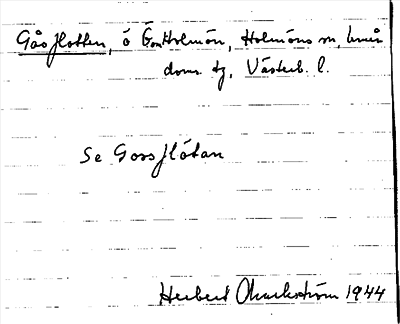 Gåsflotten, ö Holmön, Holmöns sn, Umeå
doms. tg, Västerb. l.
Se Gossflötan
Herbert Markström 1944